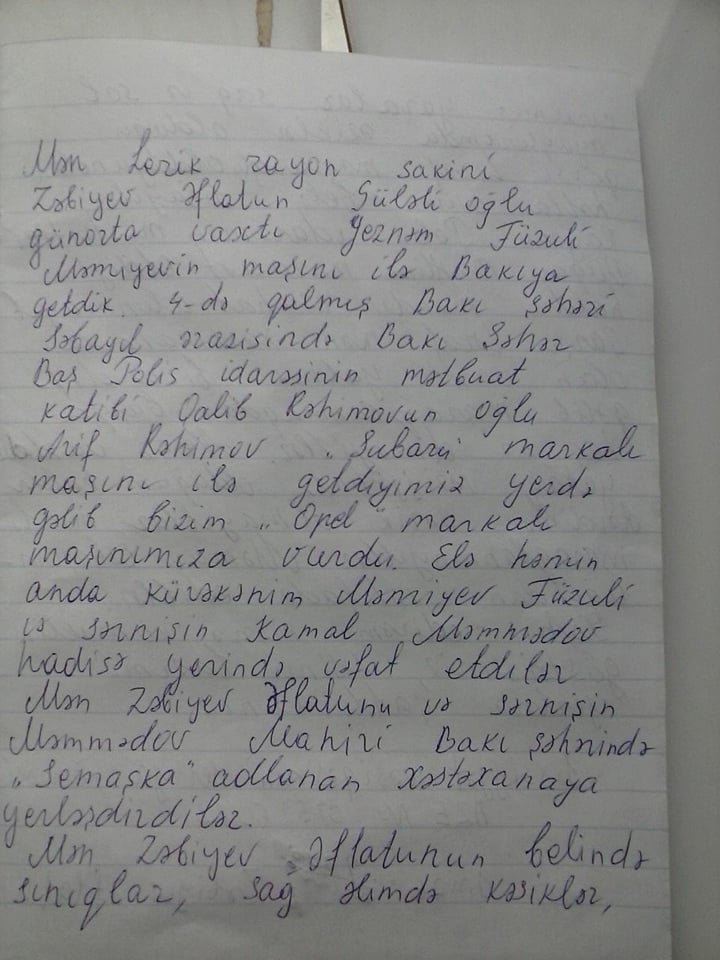 Mən Lerik rayon sakini
Zəbiyev Əflatun Güləli oğlu
günorta vaxtı yeznəm Füzuli
Məmiyevin maşını ilə Bakıya
getdik. 4-də qalmış Bakı şəhəri
Səbayıl ərazisində Bakı Şəhər
Baş Polis idarəsinin mətbuat
katibi Qalib Rəhimovun oğlu
Arif Rəhimov. „Subaru" markalı
maşını ilə getdiyimiz yerdə
gəlib bizim „Opel" markalı
maşınımıza vurdu. Elə həmin
anda kürəkənim Məmiyev Füzuli
və sərnişin Kamal Məmmədov
hadisə yerində vəfat etdilər
Mən Zəbiyev Əflatunu və sərnişin
Məmmədov Mahiri Bakı şəhərində
„Semaşka" adlanan xəstəxanaya
yerləşdirdilər.
Mən Zəbiyev Əflatunun belində
sınıqlar, sağ əlimdə kəsiklər,